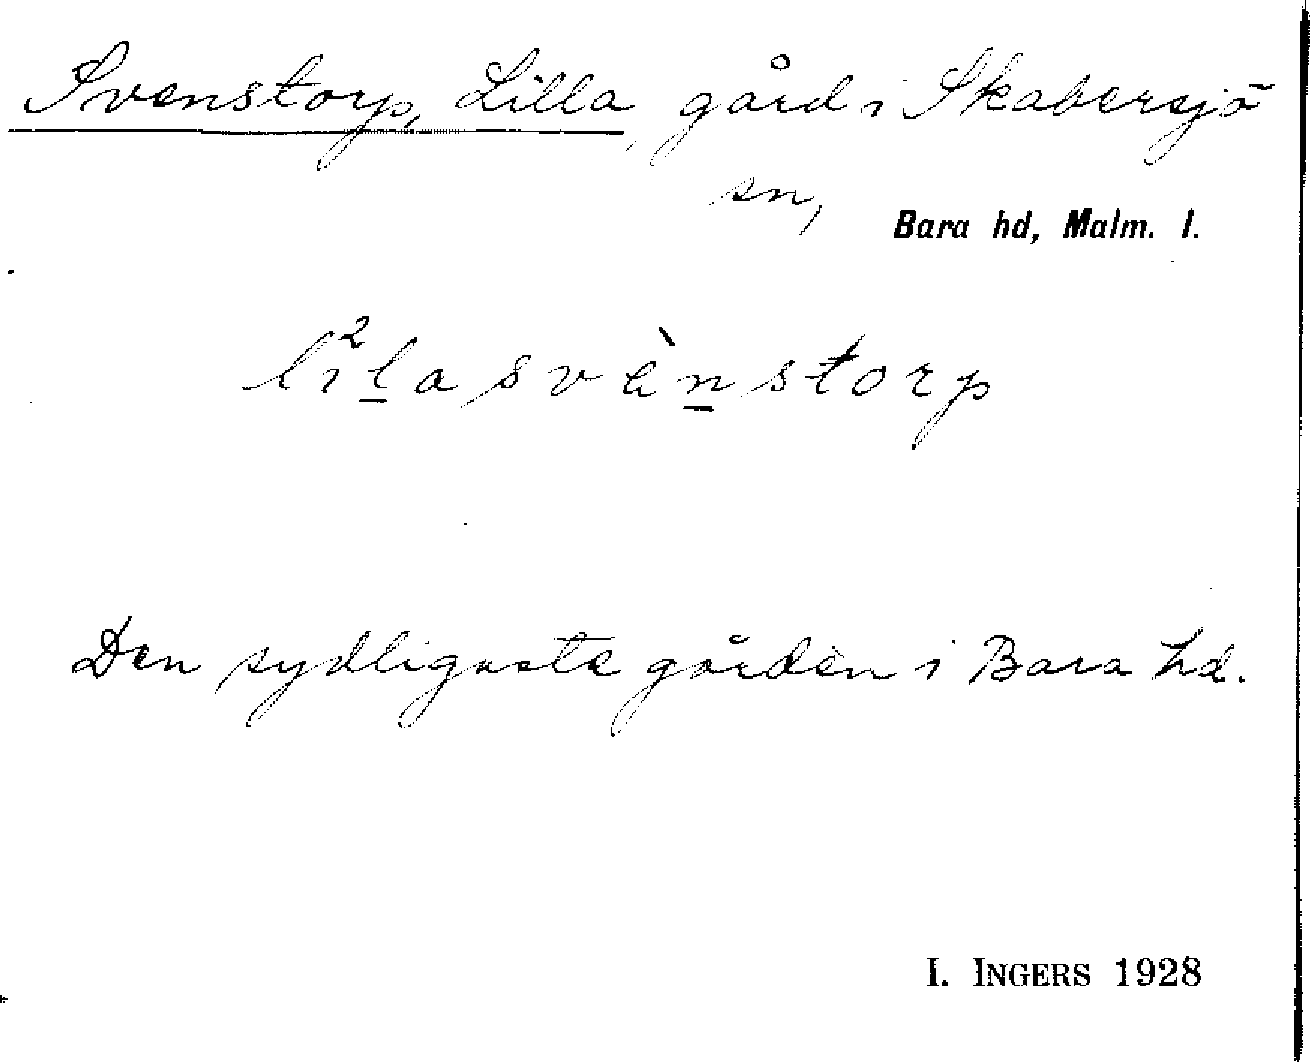 Svenstorp, Lilla, gård i Skabersjö
sn, Bara hd, Malm. l.
li²l̲asvèn̲storp
Den sydligaste gården i Bara hd.
I. INGERS 1928